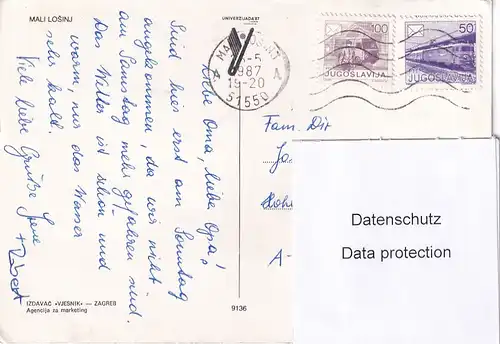 MALI LOŠINJ
UNIVERZIJADA'87
Liebe Oma, lieber Opa!
Sind hier erst am Sonntag
angekommen, da wir nicht
am Samstag mehr gefahren sind.
Das Wetter ist schön und
warm, nur das Wasser
sehr kalt.
Viele liebe Grüße
+ Robert
IZDAVAČ «VJESNIK» — ZAGREB
Agencija za marketing
9136
1987
19-20
51550
A A
100
JUGOSLAVIJA
50
JUGOSLAVIJA
Fam. Dir
A-
Datenschutz
Data protection